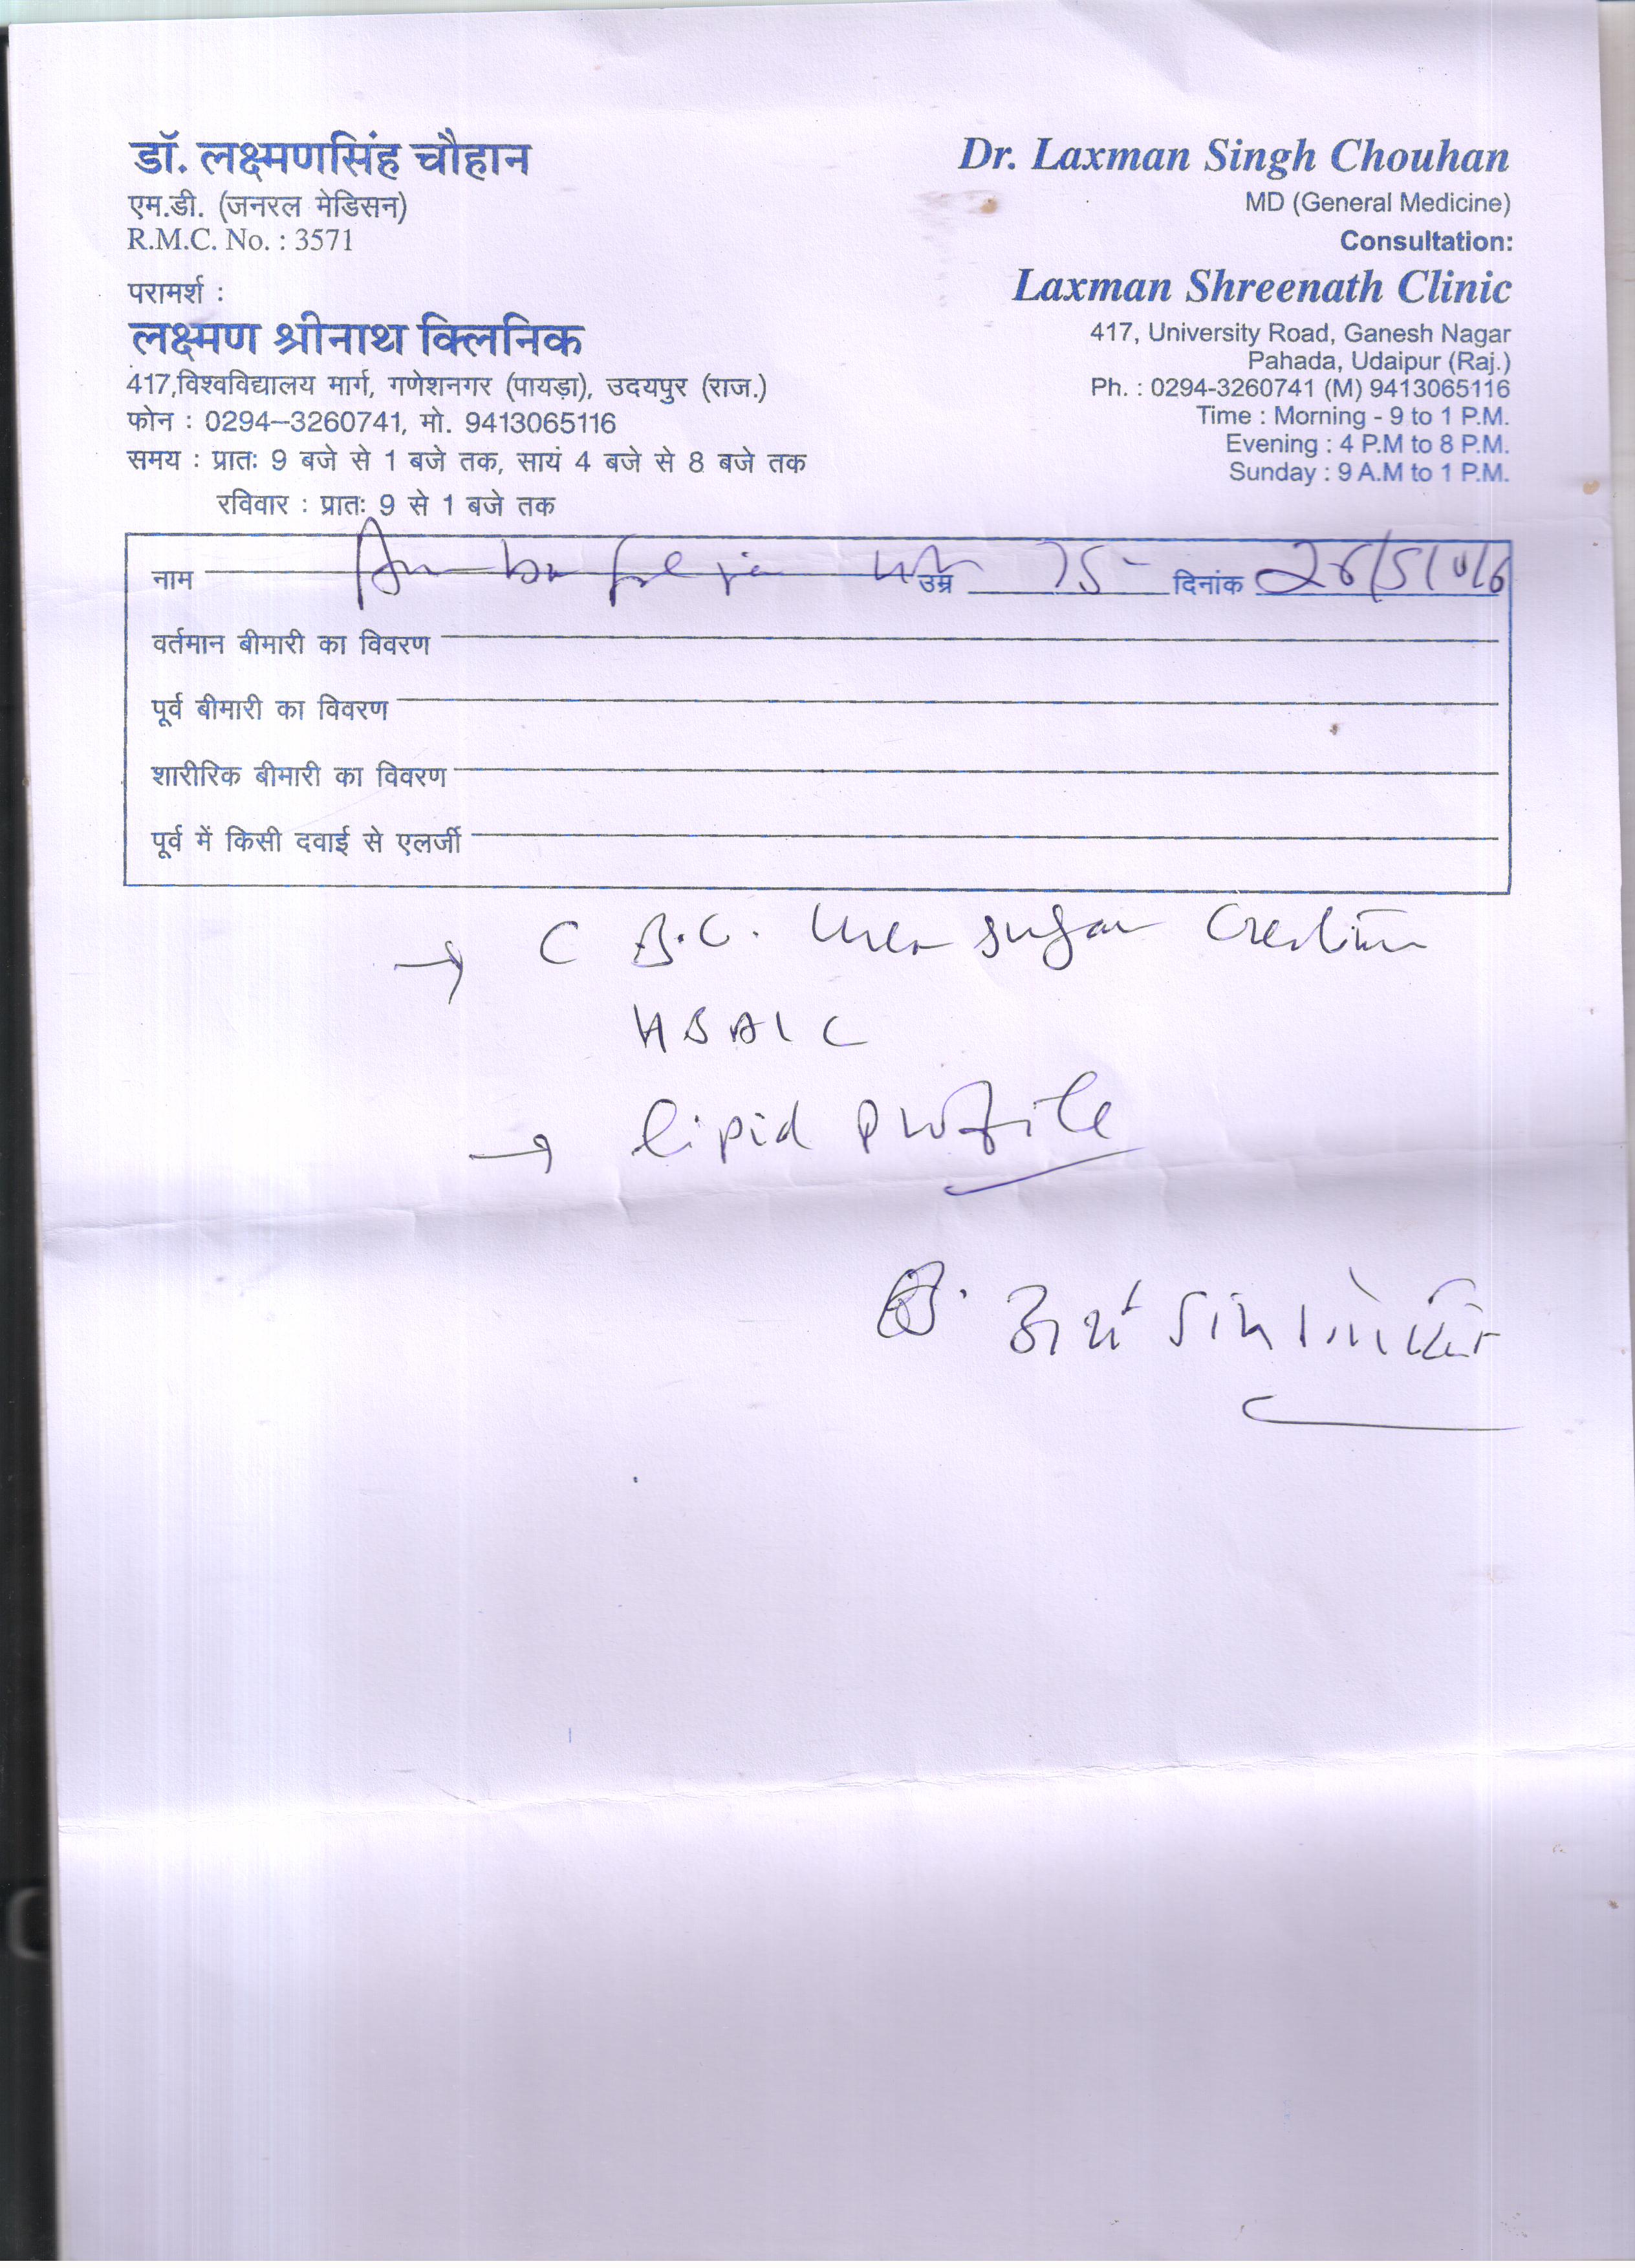 डॉ. लक्ष्मणसिंह चौहान
एम.डी. (जनरल मेडिसन)
R.M.C. No. : 3571
परामर्श :
लक्ष्मण श्रीनाथ क्लिनिक
417,विश्वविद्यालय मार्ग, गणेशनगर (पायड़ा), उदयपुर (राज.)
फोन : 0294–3260741, मो. 9413065116
समय : प्रातः 9 बजे से 1 बजे तक, सायं 4 बजे से 8 बजे तक
रविवार : प्रातः 9 से 1 बजे तक
Dr. Laxman Singh Chouhan
MD (General Medicine)
Consultation:
Laxman Shreenath Clinic
417, University Road, Ganesh Nagar
Pahada, Udaipur (Raj.)
Ph. : 0294-3260741 (M) 9413065116
Time : Morning - 9 to 1 P.M.
Evening : 4 P.M to 8 P.M.
Sunday : 9 A.M to 1 P.M.
नाम उम्र 75 दिनांक
वर्तमान बीमारी का विवरण
पूर्व बीमारी का विवरण
शारीरिक बीमारी का विवरण
पूर्व में किसी दवाई से एलर्जी
→ C B.C. Urea sugar
HBA1C
→ lipid profile